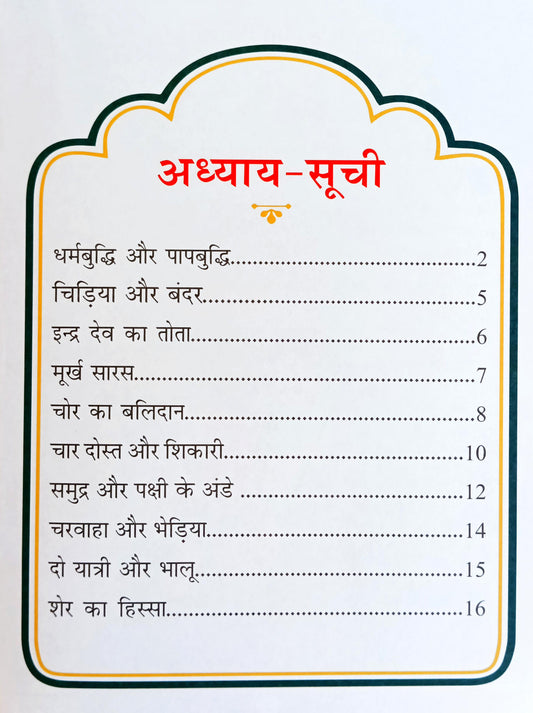 अध्याय-सूची
धर्मबुद्धि और पापबुद्धि..................................................2
चिड़िया और बंदर........................................................5
इन्द्र देव का तोता..........................................................6
मूर्ख सारस.....................................................................7
चोर का बलिदान...........................................................8
चार दोस्त और शिकारी.................................................10
समुद्र और पक्षी के अंडे ..............................................12
चरवाहा और भेड़िया....................................................14
दो यात्री और भालू......................................................15
शेर का हिस्सा.............................................................16